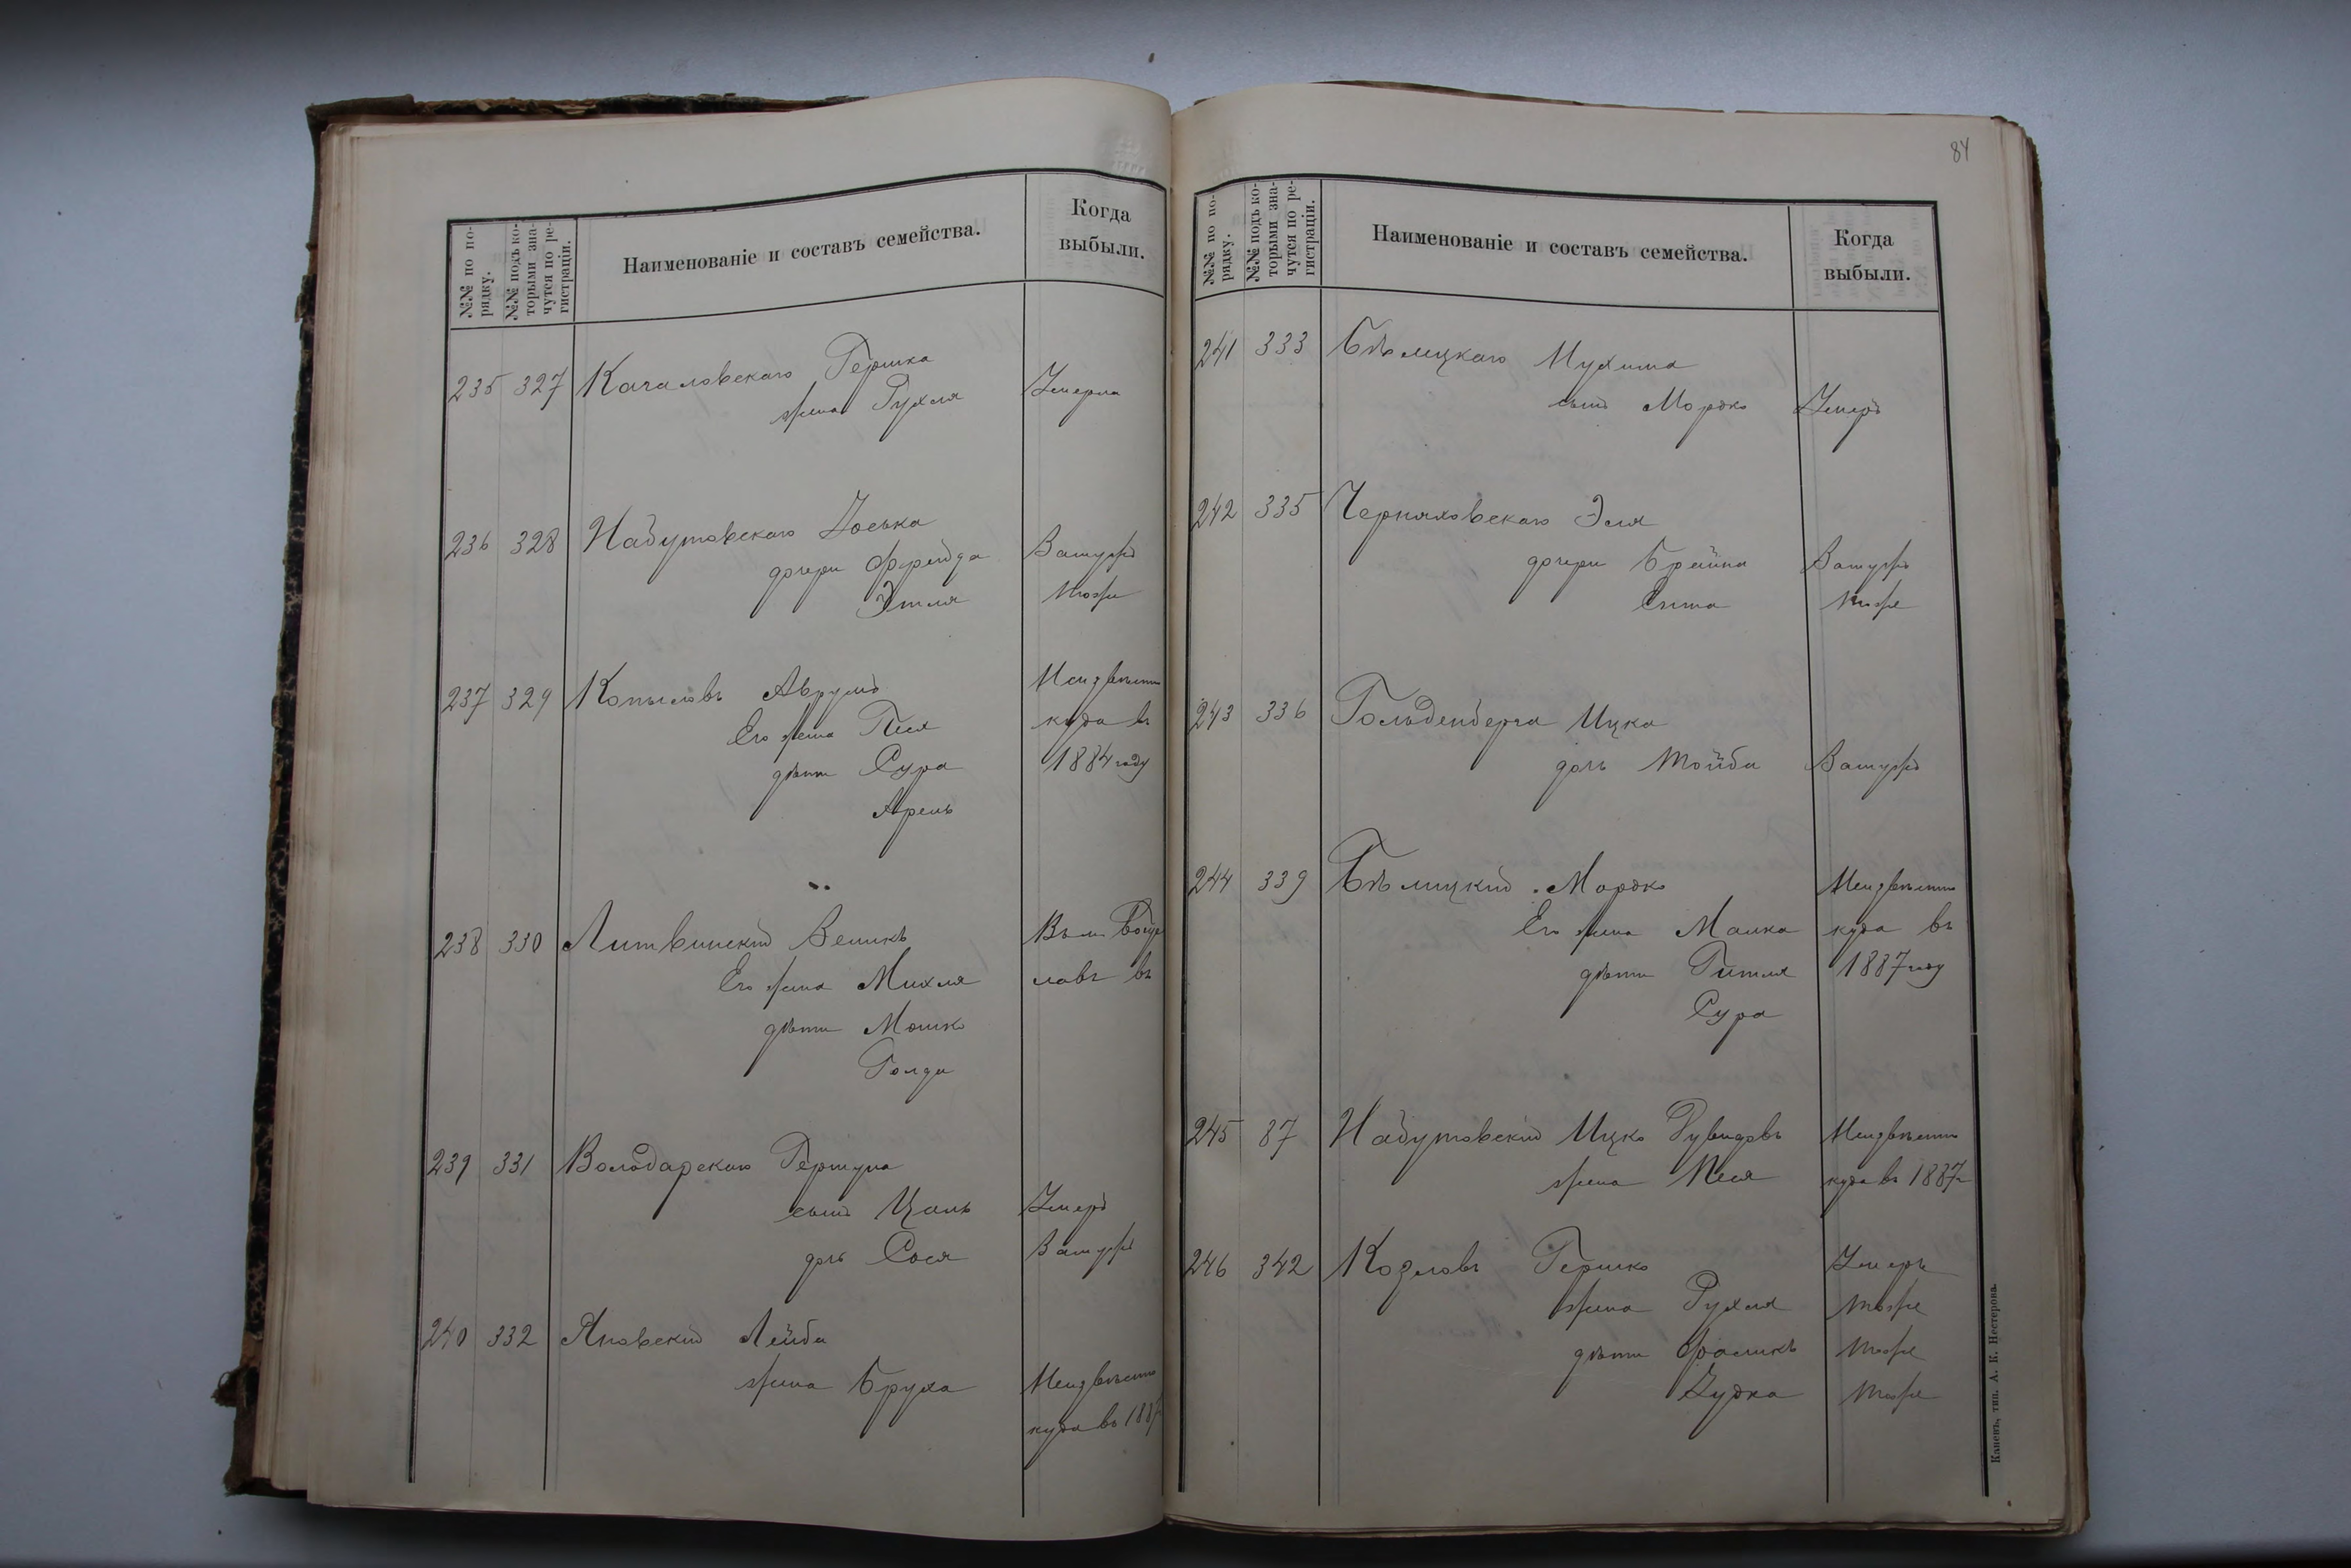 №№ по по-
рядку.
№№ подъ ко-
торыми зна-
чутся по ре-
гистраціи.
Наименованіе и составъ семейства.
Когда
выбыли.
235 327 Качаловскаго Гершка
жена Рухля Умерла
236 328 Набутовскаго Іоська
дочери Фрейда Замужъ
Этля тоже
237 329 Копыловъ Аврумъ Неизвѣстно
Его жена Песя куда въ
дѣти Сура 1884 году
Арель
238 330 Литвинскій Зеликъ
Его жена Михля славъ въ
дѣти Мошко
Голда
239 331 Володарскаго Гершуна
сынъ Цаль Умеръ
дочь Сося Замужъ
240 332 Яновскій Лейба
жена Бруха Неизвѣстно
куда въ 1887
84
№№ по по-
рядку.
№№ подъ ко-
торыми зна-
чутся по ре-
гистраціи.
Наименованіе и составъ семейства.
Когда
выбыли.
241 333 Бѣлицкаго Нухима
сынъ Мордко Умеръ
242 335 Черняховскаго Эля
дочери Брайна Замужъ
Сима тоже
243 336 Гольденберга Ицка
дочь Тойба Замужъ
244 339 Бѣлицкій Мордко Неизвѣстно
Его жена Малка куда въ
дѣти Гитля 1887 году
Сура
245 87 Набутовскій Ицко Рувиновъ Неизвѣстно
жена Песя куда въ 1887 г
246 342 Козловъ Гершко Умеръ
жена Рухля тоже
дѣти Фроликъ тоже
Худка тоже
Каневъ, тип. А. К. Нестерова.